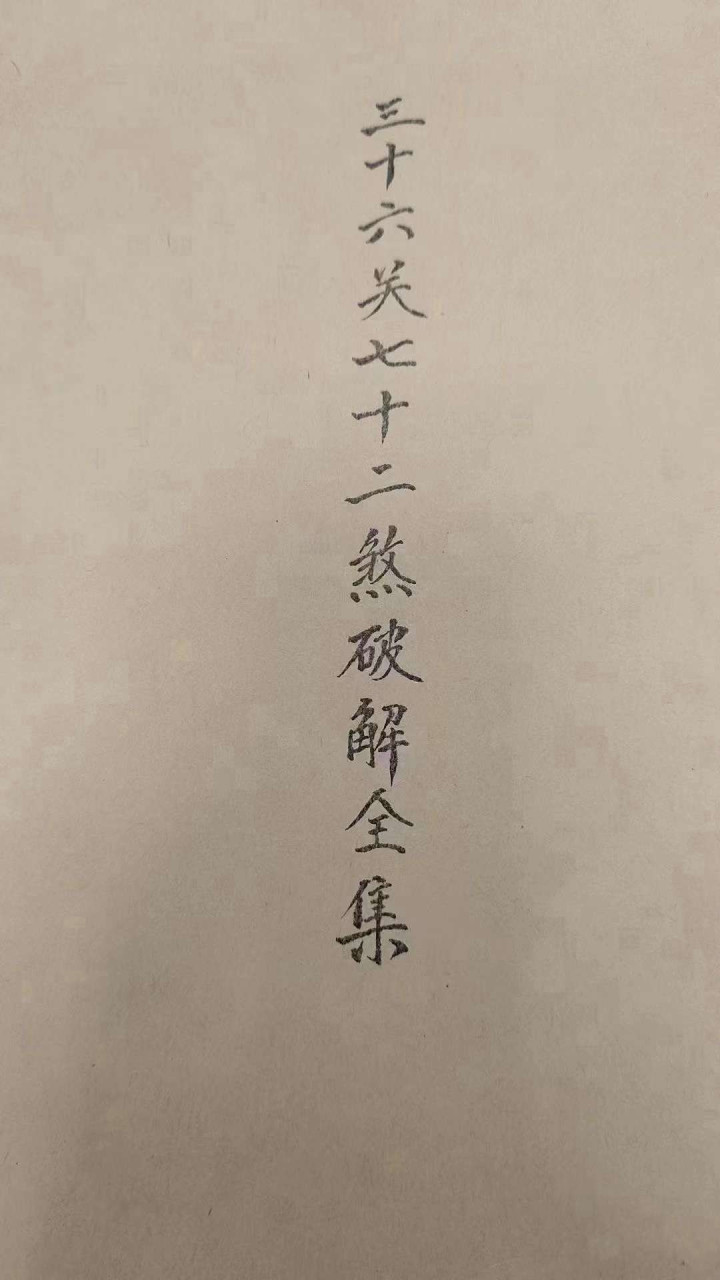 三十六关七十二煞破解全集